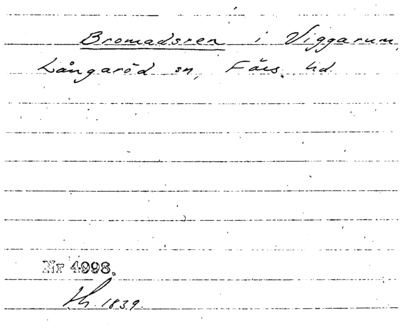 Bromadsren i Viggarum,
Långaröd sn, Färs hd
Nr 4998.
Th. 1839.